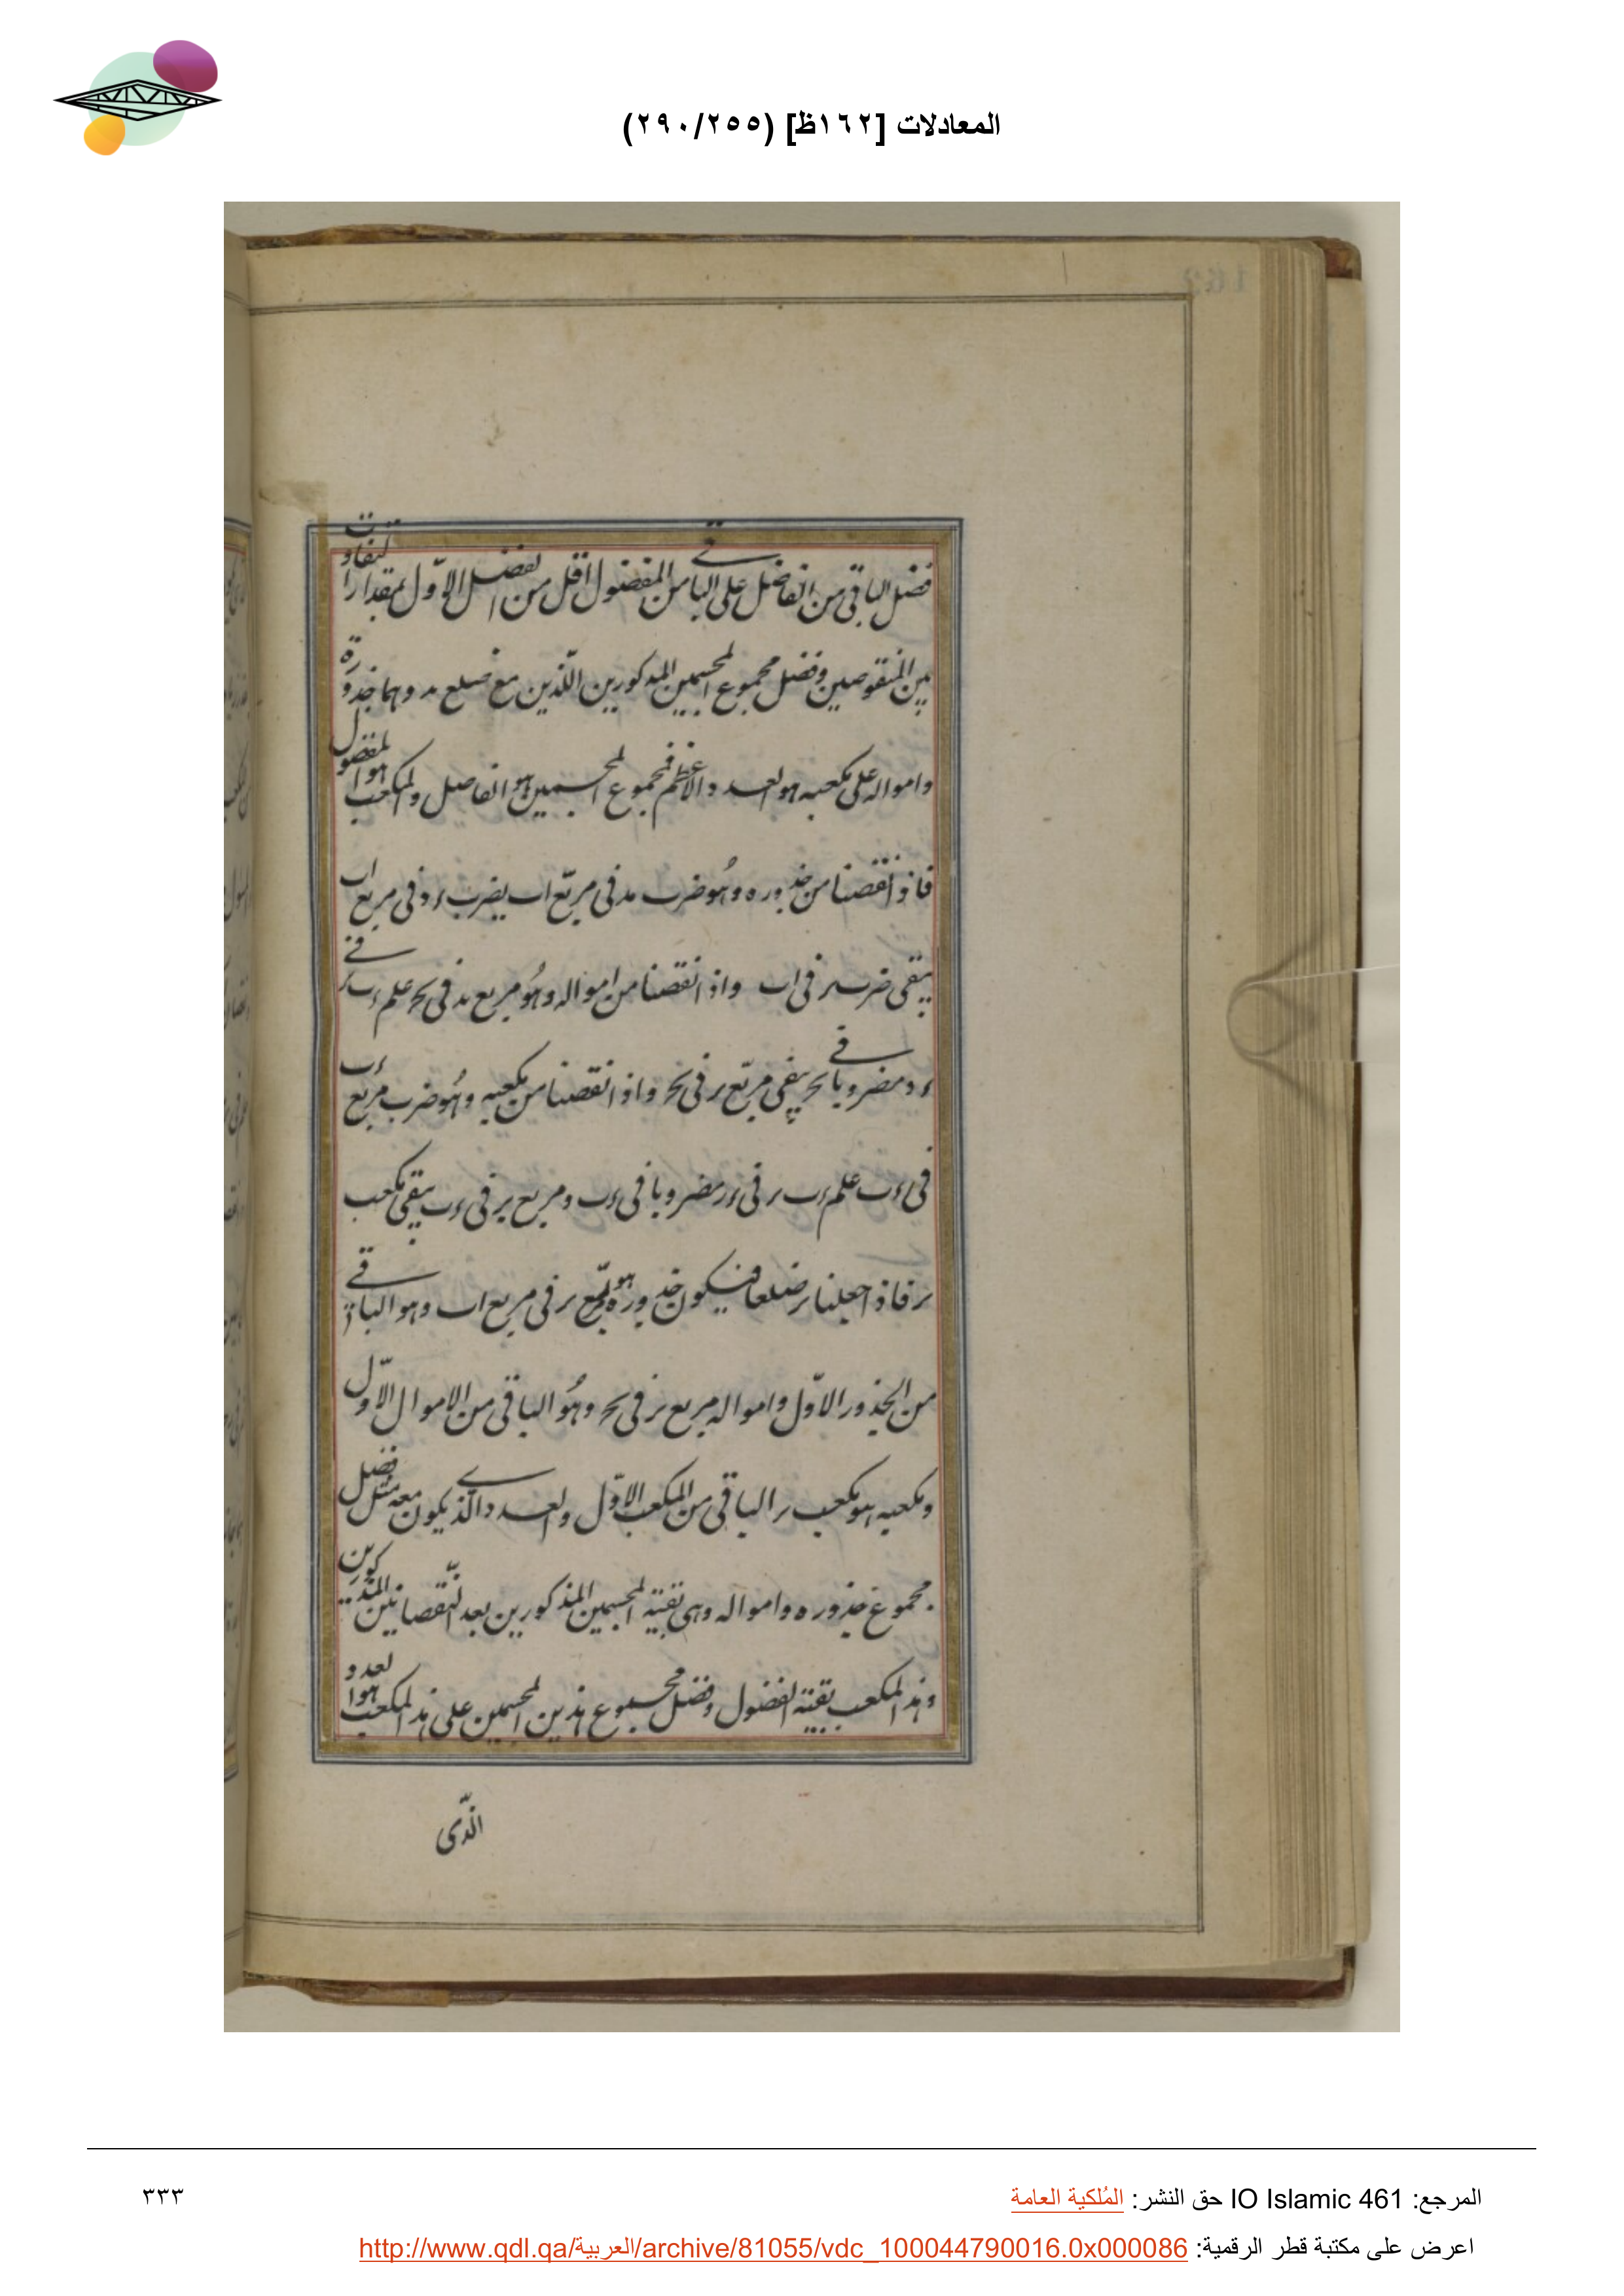 المعادلات [١٦٢ظ] (٢٩٠/٢٥٥)
فضل الباقي من الفاضل على الباقي من المفضول اقل من الفضل الاوّل بمقدار التفاوت
بين المنقوصين وفضل مجموع المجسمين المذكورين اللّذين مع ضلع مد وهما جذوره
وامواله على مكعبه هو العدد الاعظم فمجموع المجسمين هو الفاضل والمكعب هو المفضول
فاذا نقصنا من جذوره وهو ضرب مد في مربّع اب يضرب ء د في مربع اب
يبقى ضرب ر في اب واذا نقصنا من امواله وهو مربع مد في بح علم ء ب ر في
ء د مضروبا في بح يبقى مربّع ر في بح واذا نقصنا من مكعبه وهو ضرب مربع ء ب
في ء ب علم ء ب ر في ء ر مضروبا في ء ب ومربع ر في ء ب يبقى مكعب
ر فاذا جعلنا ر ضلعا فيكون جذوره هو ر في مربع اب وهو الباقي
من الجذور الاوّل وامواله مربع ر في بح وهو الباقي من الاموال الاوّل
ومكعبه هو مكعب ر الباقي من المكعب الاوّل والعدد الّذي يكون معه مثل فضل
مجموع جذوره وامواله وهي بقية المجسمين المذكورين بعد النّقصانين المذكورين
وهذا المكعب بقية المفضول وفضل مجموع هذين المجسمين على هذا المكعب هو العدد
الّذى
المرجع: IO Islamic 461 حق النشر: المُلكية العامة
٣٣٣
اعرض على مكتبة قطر الرقمية: http://www.qdl.qa/العربية/archive/81055/vdc_100044790016.0x000086